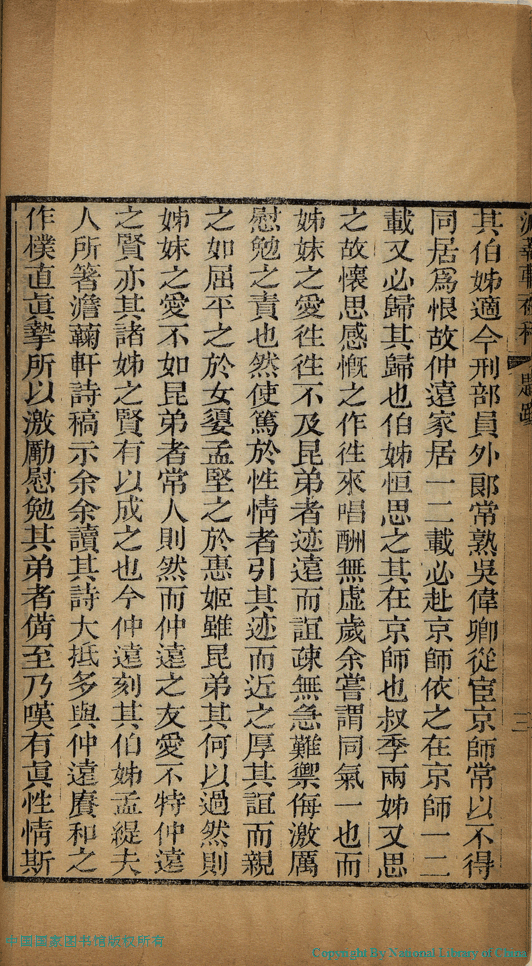 題跋
二
其伯姊適今刑部員外郞常熟吳偉卿從宦京師常以不得
同居爲恨故仲遠家居一二載必赴京師依之在京師一二
載又必歸其歸也伯姊恒思之其在京師也叔季兩姊又思
之故懷思感慨之作徃來唱酬無虛歲余嘗謂同氣一也而
姊妹之愛徃徃不及昆弟者迹遠而誼疎無急難禦侮激厲
慰勉之責也然使篤於性情者引其迹而近之厚其誼而親
之如屈平之於女嬃孟堅之於惠姬雖昆弟其何以過然則
姊妹之愛不如昆弟者常人則然而仲遠之友愛不特仲遠
之賢亦其諸姊之賢有以成之也今仲遠刻其伯姊孟緹夫
人所箸澹蘜軒詩稿示余余讀其詩大抵多與仲遠賡和之
作樸直眞摯所以激勵慰勉其弟者備至乃嘆有眞性情斯
中国国家图书馆版权所有
Copyright By National Library of China